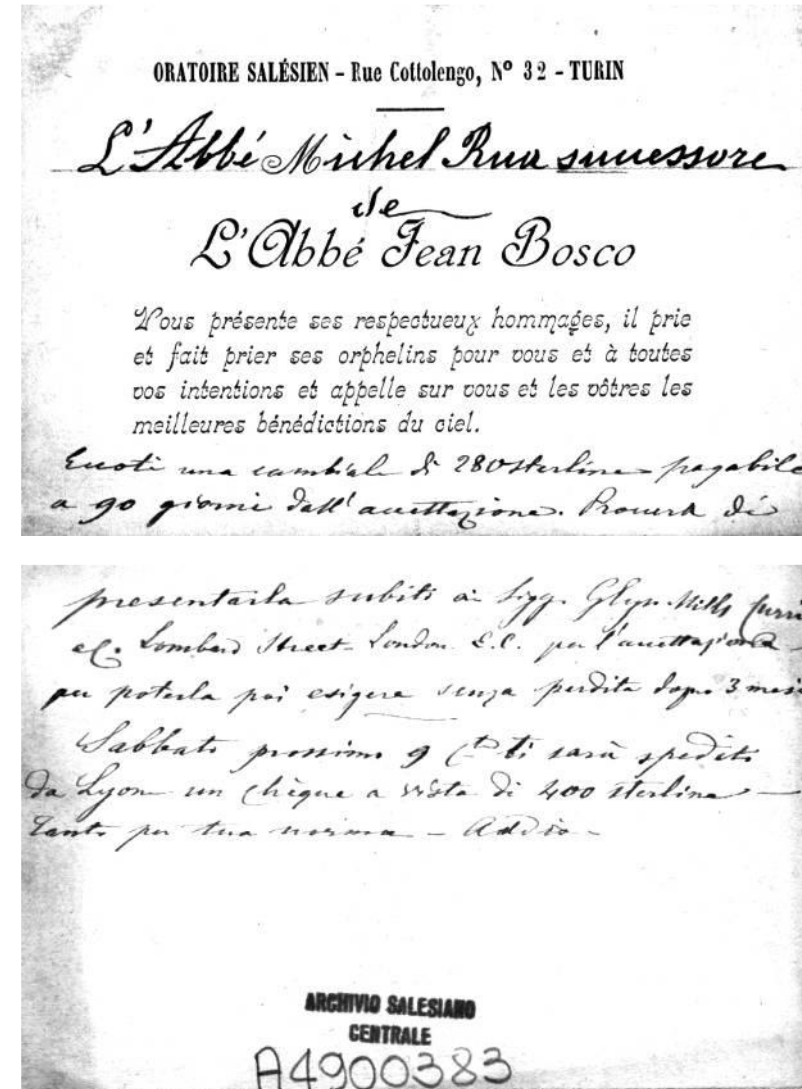 ORATOIRE SALÉSIEN – Rue Cottolengo, Nº 32 – TURIN
L'Abbé Michel Rua successore
de
L'Abbé Jean Bosco
Vous présente ses respectueux hommages, il prie
et fait prier ses orphelins pour vous et à toutes
vos intentions et appelle sur vous et les vôtres les
meilleures bénédictions du ciel.
una cambiale di 280 sterline pagabile
a 90 giorni dall'accettazione. Procura di
presentarla subito ai Sigg. Glyn Mills
Lombard Street London E.C. per l'accettazione
per poterla poi esigere senza perdita dopo 3 mesi
Sabbato prossimo 9 ti sarà spedito
da Lyon un chèque a vista di 400 sterline –
Tanto per tua norma – Addio –
ARCHIVIO SALESIANO
CENTRALE
A4900383